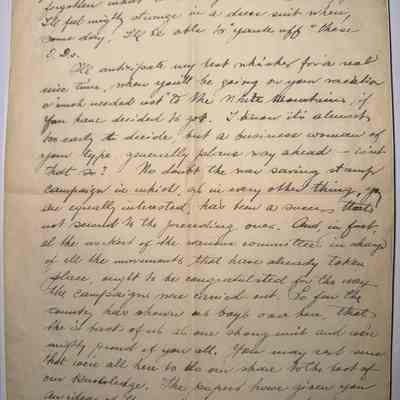 forgotten what
I'll feel mighty strange in a dress suit when,
some day, I'll be able to "yank off" these
O.Ds.
We anticipate my best wishes for a real
nice time, when you'll be going on your vacation
a "much needed rest" to the White Mountains, if
you have decided to go. I know it's almost
too early to decide but a business woman of
your type generally plans way ahead - isn't
that so? No doubt the war saving stamp
campaign in which, as in every other thing, you
are equally interested, has been a success, that's
not second to the preceding ones. And, in fact,
all the workers of the various committees in charge
of all the movements that have already taken
place, ought to be congratulated for the way
the campaigns were carried out. So far the
country has shown us boys over here, that
she is back of us as one strong unit and we're
mighty proud of you all. You may rest sure
that we're all here to do our share to the best of
our knowledge. The papers have given you
an idea of the